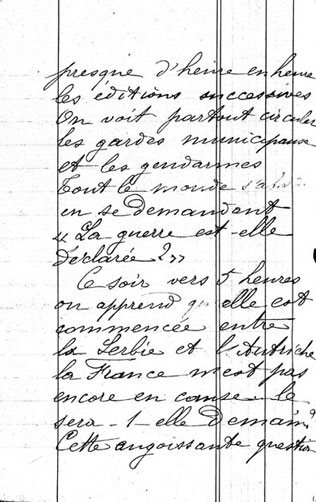 presque d'heure en heure
les éditions successives
On voit partout circuler
les gardes municipaux
et les gendarmes
Tout le monde
en se demandant
« La guerre est-elle
déclarée ? »
Ce soir vers 5 heures
on apprend qu'elle est
commencée entre
la Serbie et l'Autriche
la France n'est pas
encore en cause le
sera-t-elle demain?
Cette angoissante question